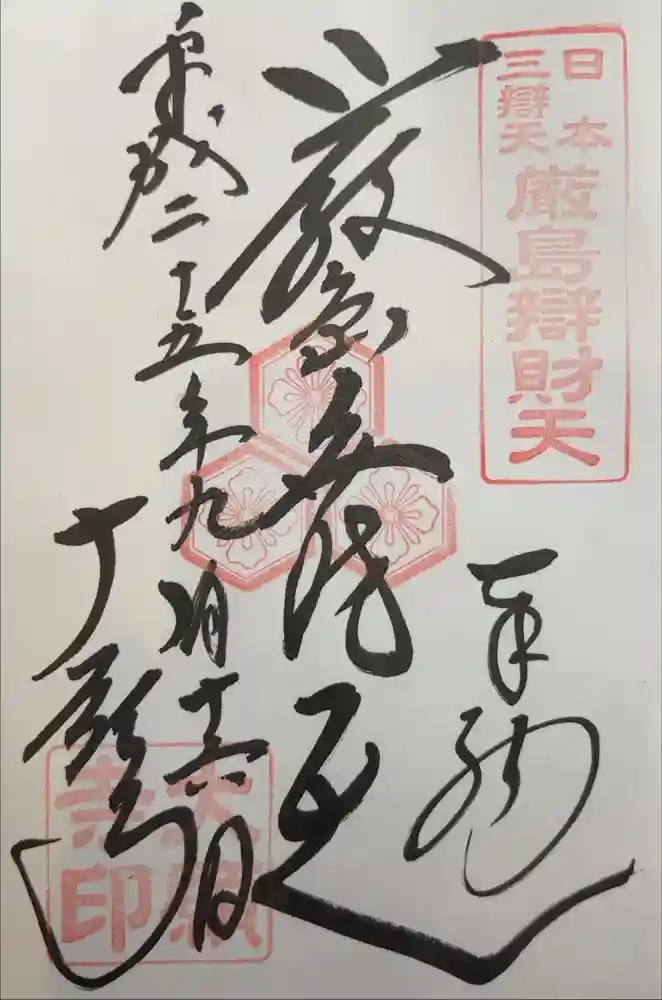 日本
三辯天
厳島辯財天
奉拝
厳島
平成二十五年九月十六日
大願寺
大願
寺印